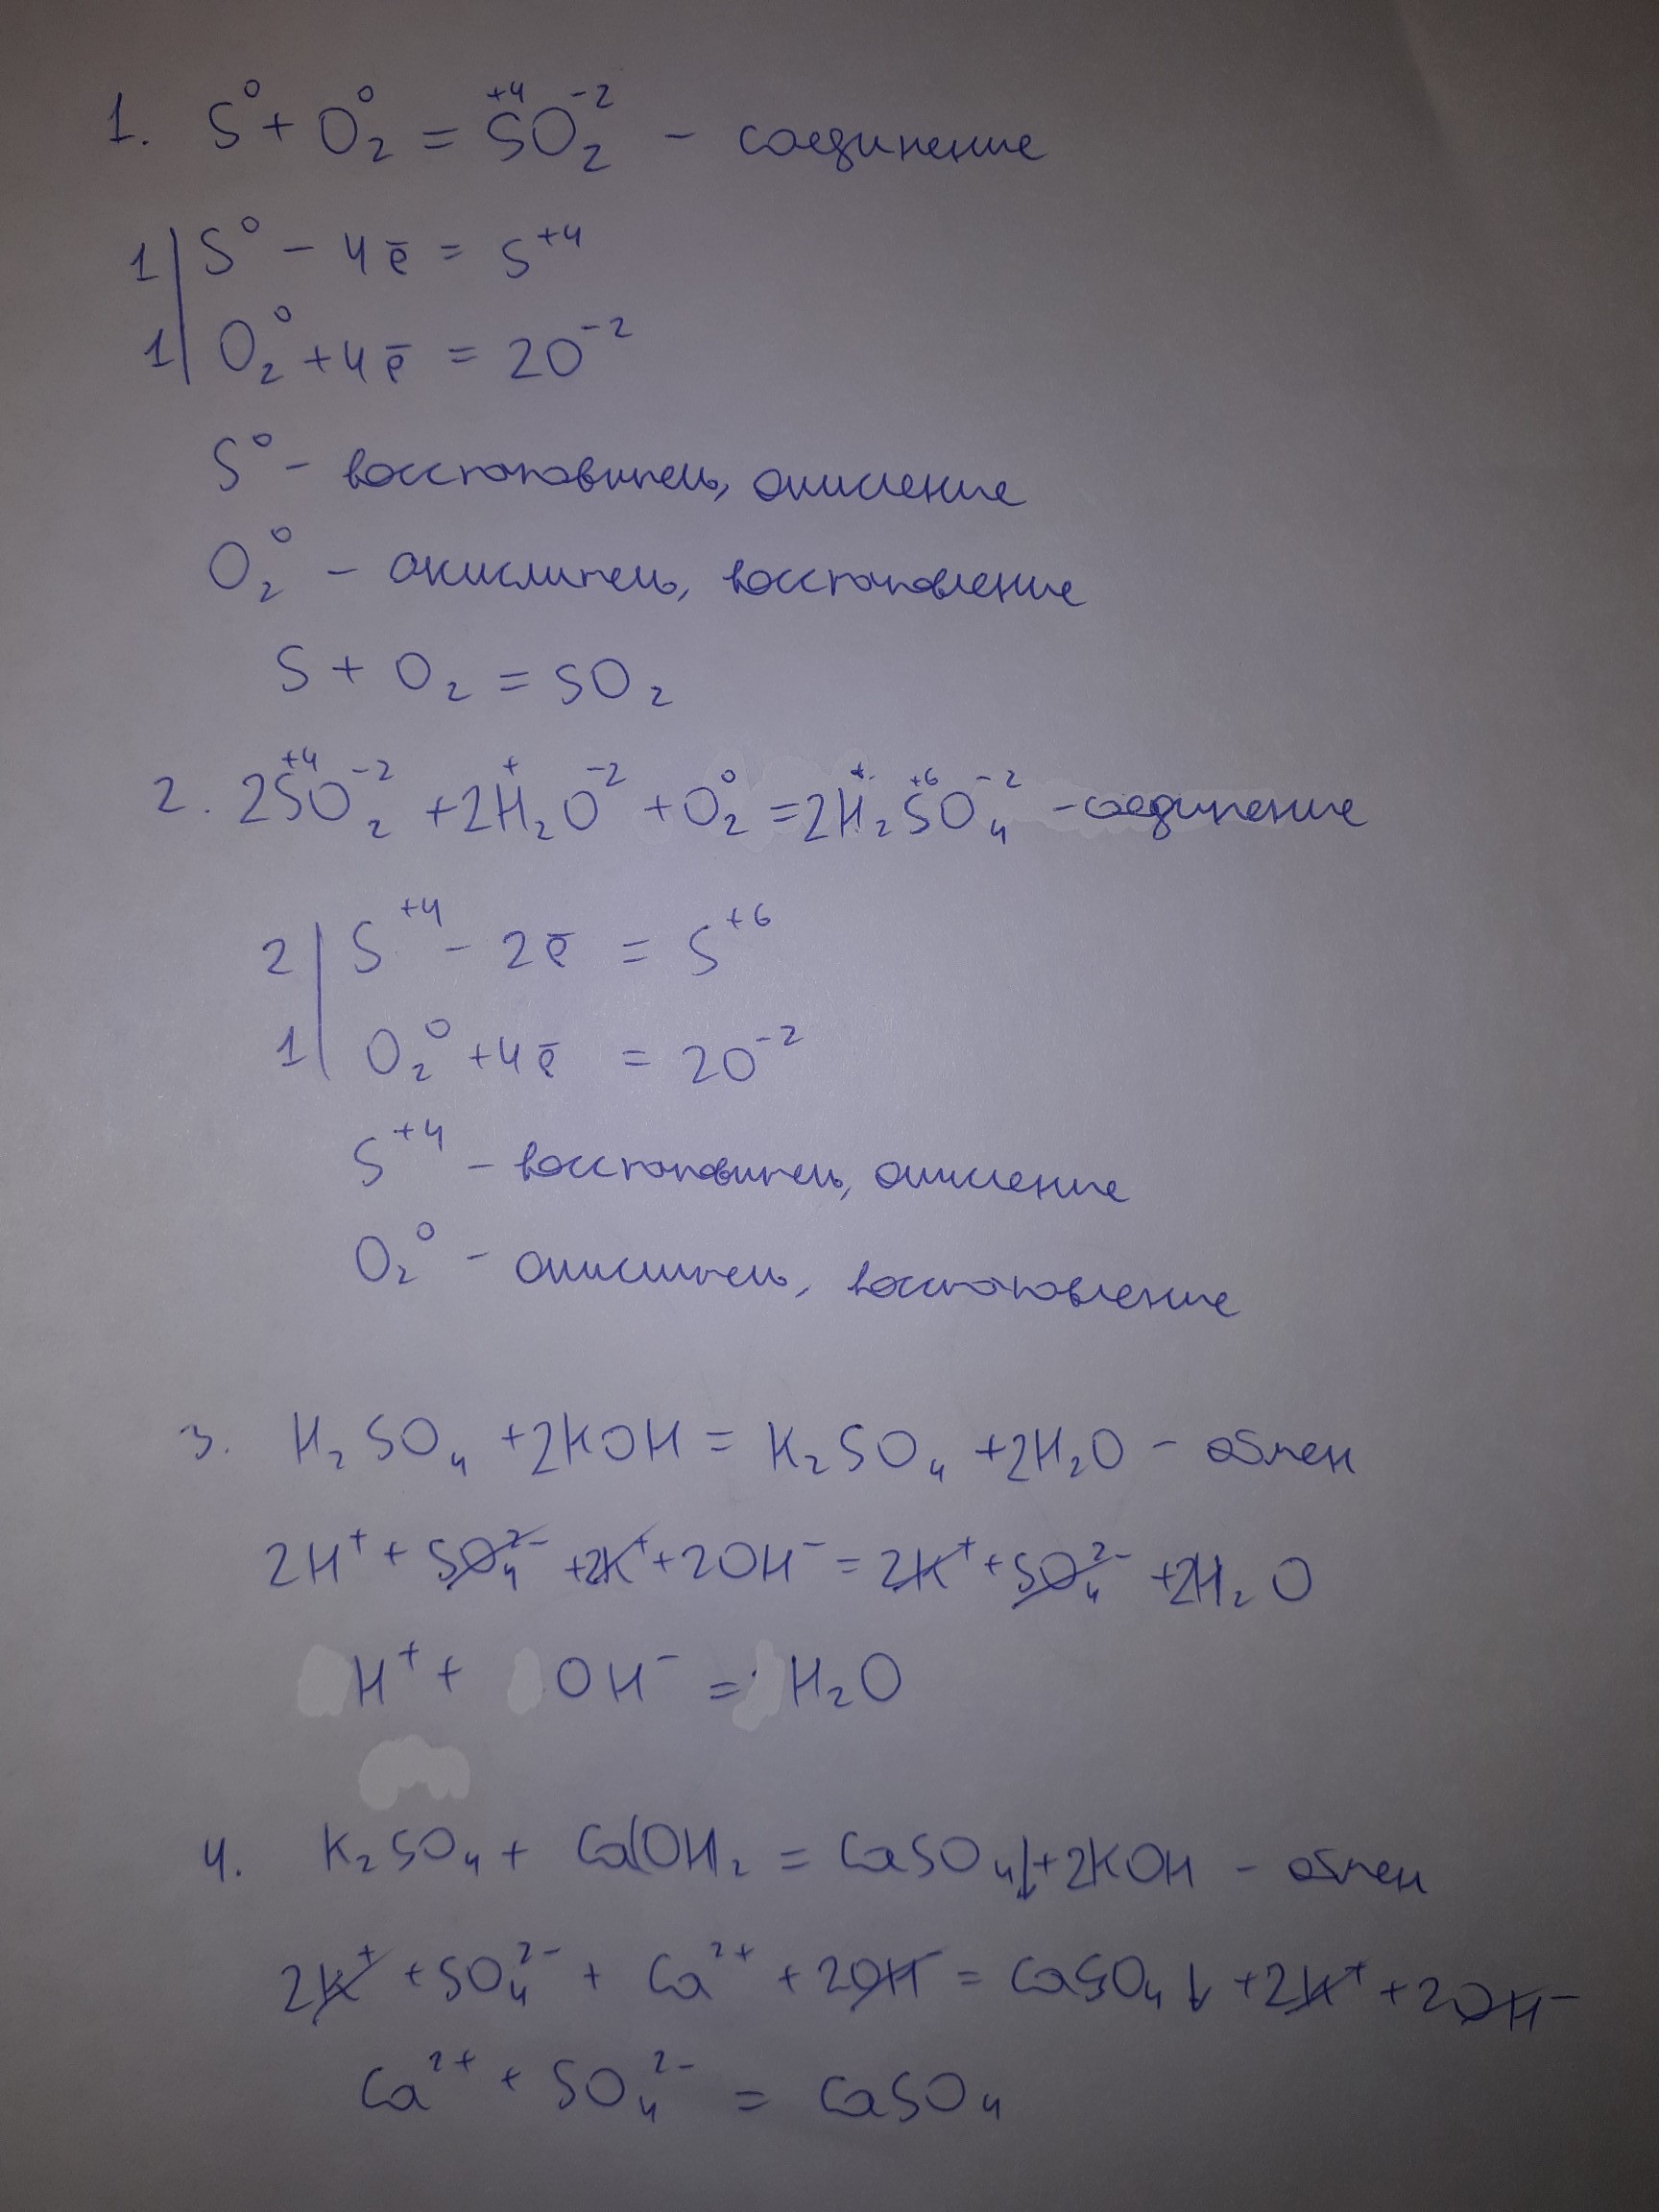 1. S⁰ + O₂⁰ = S⁺⁴O₂⁻² - соединение
1| S⁰ - 4ē = S⁺⁴
1| O₂⁰ + 4ē = 2O⁻²
S⁰ - восстановитель, окисление
O₂⁰ - окислитель, восстановление
S + O₂ = SO₂
2. 2S⁺⁴O₂⁻² + 2H₂⁺O⁻² + O₂⁰ = 2H₂⁺S⁺⁶O₄⁻² - соединение
2| S⁺⁴ - 2ē = S⁺⁶
1| O₂⁰ + 4ē = 2O⁻²
S⁺⁴ - восстановитель, окисление
O₂⁰ - окислитель, восстановление
3. H₂SO₄ + 2KOH = K₂SO₄ + 2H₂O - обмен
2H⁺ + SO₄²⁻ + 2K⁺ + 2OH⁻ = 2K⁺ + SO₄²⁻ + 2H₂O
H⁺ + OH⁻ = H₂O
4. K₂SO₄ + Ca(OH₂ = CaSO₄↓ + 2KOH - обмен
2K⁺ + SO₄²⁻ + Ca²⁺ + 2OH⁻ = CaSO₄↓ + 2K⁺ + 2OH⁻
Ca²⁺ + SO₄²⁻ = CaSO₄